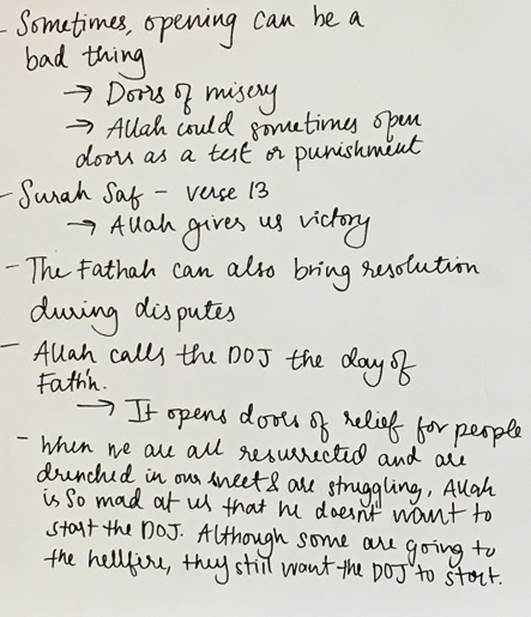 - Sometimes, opening can be a
bad thing
→ Doors of misery
→ Allah could sometimes open
doors as a test or punishment
- Surah Saf - verse 13
→ Allah gives us victory
- The Fathah can also bring resolution
during disputes
- Allah calls the DOJ the day of
Fath'h.
→ It opens doors of relief for people
- When we are all resurrected and are
drenched in our sweet & are struggling, Allah
is so mad at us that he doesnt want to
start the DOJ. Although some are going to
the hellfire, they still want the DOJ to start.